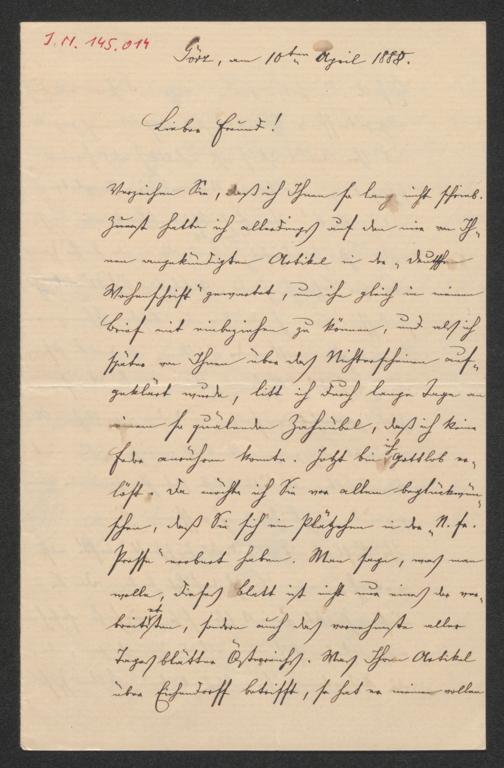 J.N. 145.014
Görz, am 10ten April 1888.
Lieber Freund!
Verzeihen Sie, daß ich Ihnen so lang nicht schrieb.
Zuerst hatte ich allerdings auf den mir von Ih-
nen angekündigten Artikel in der „Deutschen
Wochenschrift" gewartet, um ihn gleich in meinen
Brief mit einbeziehen zu können, und als ich
später von Ihnen über das Nichterscheinen auf-
geklärt wurde, litt ich durch lange Tage an
einem so quälenden Zahnübel, daß ich keine
Feder anrühren konnte. Jetzt bin ich Gottlob er-
löst. Da möchte ich Sie vor allem beglückwün-
schen, daß Sie sich ein Plätzchen in der „N. fr.
Presse" erobert haben. Man sage, was man
wolle, dieses Blatt ist nicht nur eines der ver-
breitetsten, sondern auch das vornehmste aller
Tagesblätter Österreichs. Was Ihren Artikel
über Eichendorff betrifft, so hat er meinen vollen